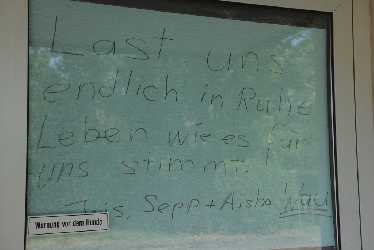 Last uns
endlich in Ruhe
Leben wie es für
uns stimmt.
Iris, Sepp + Aisha Wau
Warnung vor dem Hunde